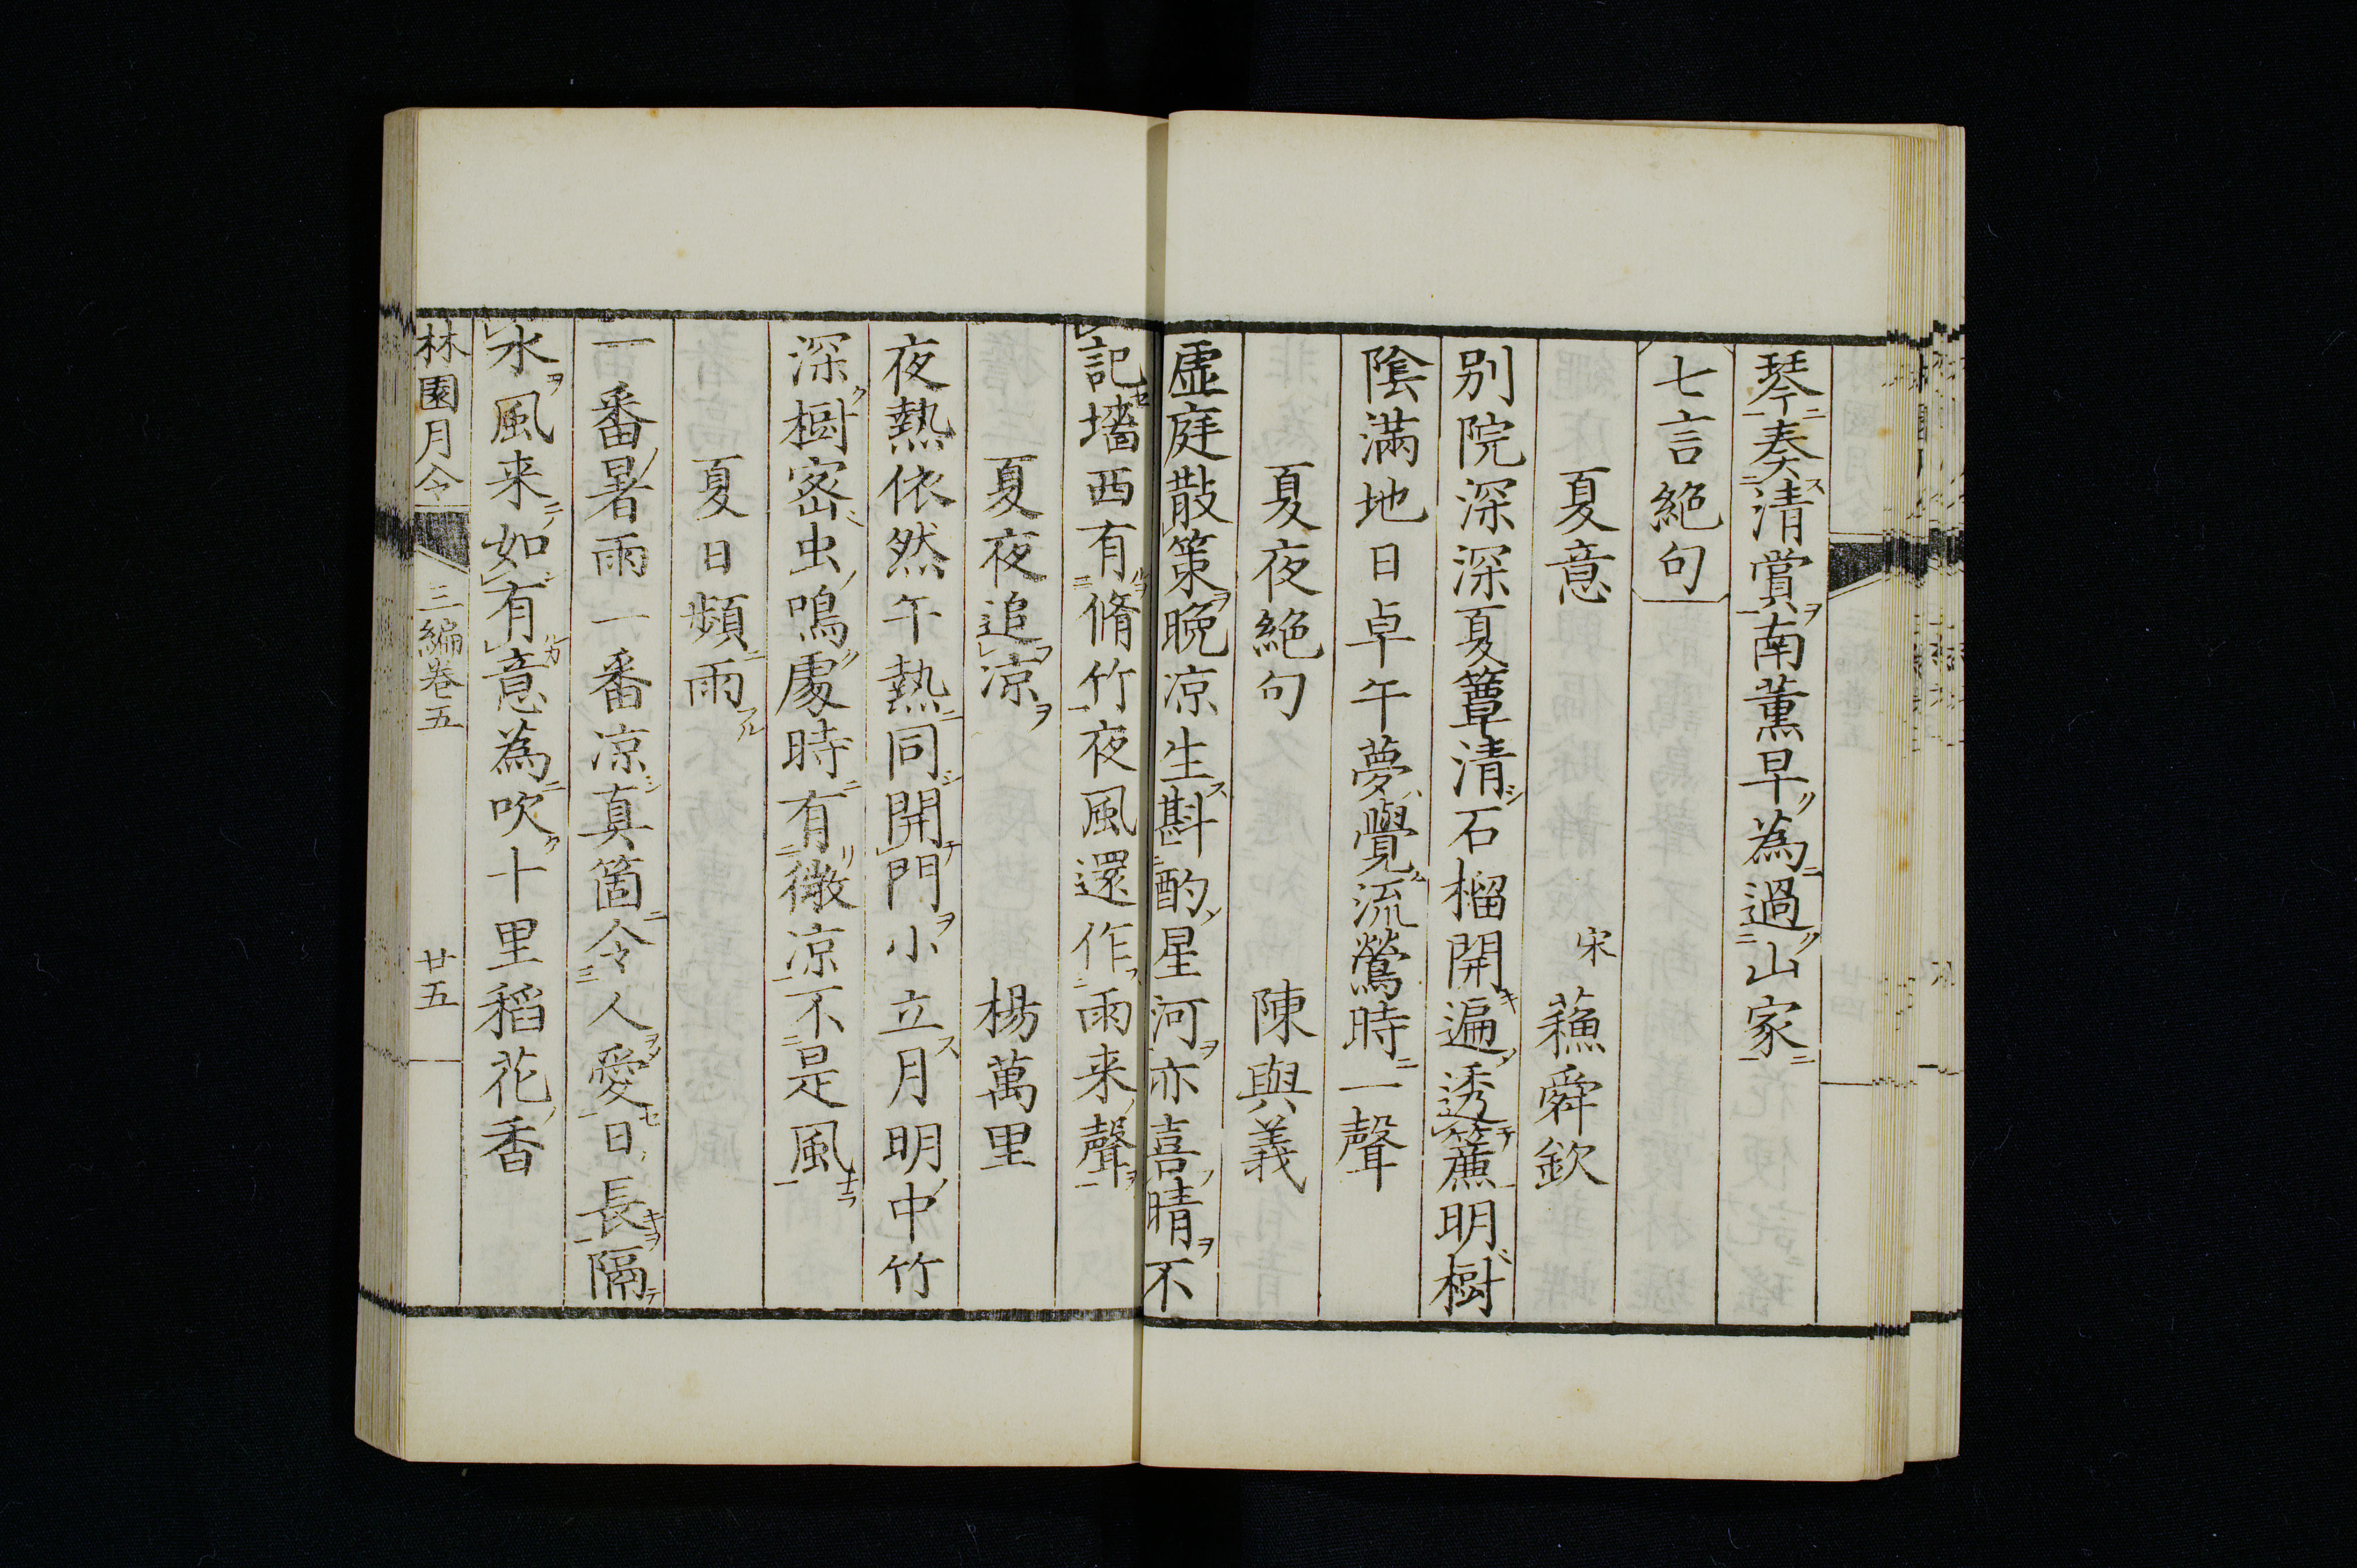 琴奏清賞南薫早為過山家
七言絶句
夏意 宋 蘓舜欽
别院深深夏簟清石榴開遍透簾明樹
陰滿地日卓午夢覺流鶯時一聲
夏夜絶句 陳與義
虛庭散策晩凉生斟酌星河亦喜晴不
記墻西有脩竹夜風還作雨来聲
夏夜追凉 楊萬里
夜熱依然午熱同開門小立月明中竹
深樹宻虫鳴處時有微凉不是風
夏日頻雨
一番暑雨一番凉真箇令人愛日長隔
水風来如有意為吹十里稻花香
林園月令 三編卷五 廿五